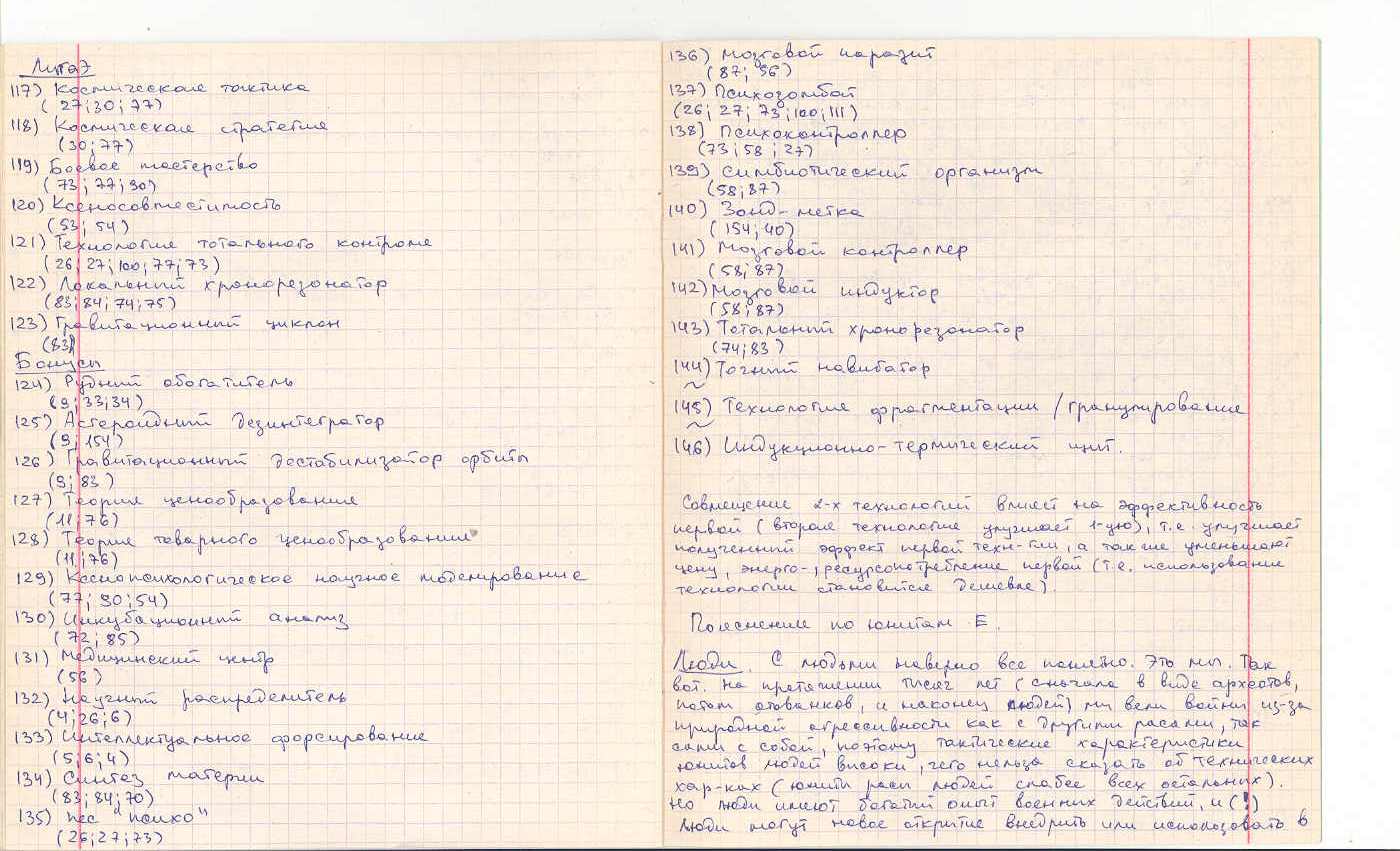 117) Космическая тактика
(27;30;77)
118) Космическая стратегия
(30;77)
119) Боевое мастерство
(73;77;30)
120) Ксеносовместимость
(53;54)
121) Технология тотального контроля
(26;27;100;77;73)
122) Локальный хронорезонатор
(83;84;74;75)
123) Гравитационный циклон
(83)
Бонусы
124) Рудный обогатитель
(9;33;34)
125) Астероидный дезинтегратор
(9;154)
126) Гравитационный дестабилизатор орбиты
(9;83)
127) Теория ценообразования
(11;76)
128) Теория товарного ценообразования
(11;76)
129) Ксенопсихологическое научное моделирование
(77;30;54)
130) Инкубационный анализ
(72;85)
131) Медицинский центр
(56)
132) Научный распределитель
(4;26;6)
133) Интеллектуальное форсирование
(5;6;4)
134) Синтез материи
(83;84;70)
135) Пес "психо"
(26;27;73)
136) Мозговой паразит
(87;56)
137) Психозомбой
(26;27;73;100;111)
138) Психоконтроллер
(73;58;27)
139) Симбиотический организм
(58;87)
140) Зонд-метка
(154;40)
141) Мозговой контроллер
(58;87)
142) Мозговой индуктор
(58;87)
143) Тотальный хронорезонатор
(74;83)
144) Точный навигатор
~
145) Технология фрагментации/гранулирования
~
146) Индукционно-термический щит.
Совмещение 2-х технологий влияет на эффективность
первой (вторая технология улучшает 1-ую), т.е. улучшает
полученный эффект первой техн-гии, а также уменьшают
цену, энерго-, ресурсопотребление первой (т.е. использование
технологии становится дешевле).
Пояснение по юнитам Е.
Люди. С людьми наверно все понятно. Это мы. Так
вот. На протяжении тысяч лет (сначала в виде археотов,
потом атованков, и наконец людей) мы вели войны из-за
природной агрессивности как с другими расами, так
сами с собой, поэтому тактические характеристики
юнитов людей высоки, чего нельзя сказать об технических
хар-ках (юниты расы людей слабее всех остальных).
Но люди имеют богатый опыт военных действий, и (!)
люди могут новое открытие внедрить или использовать в